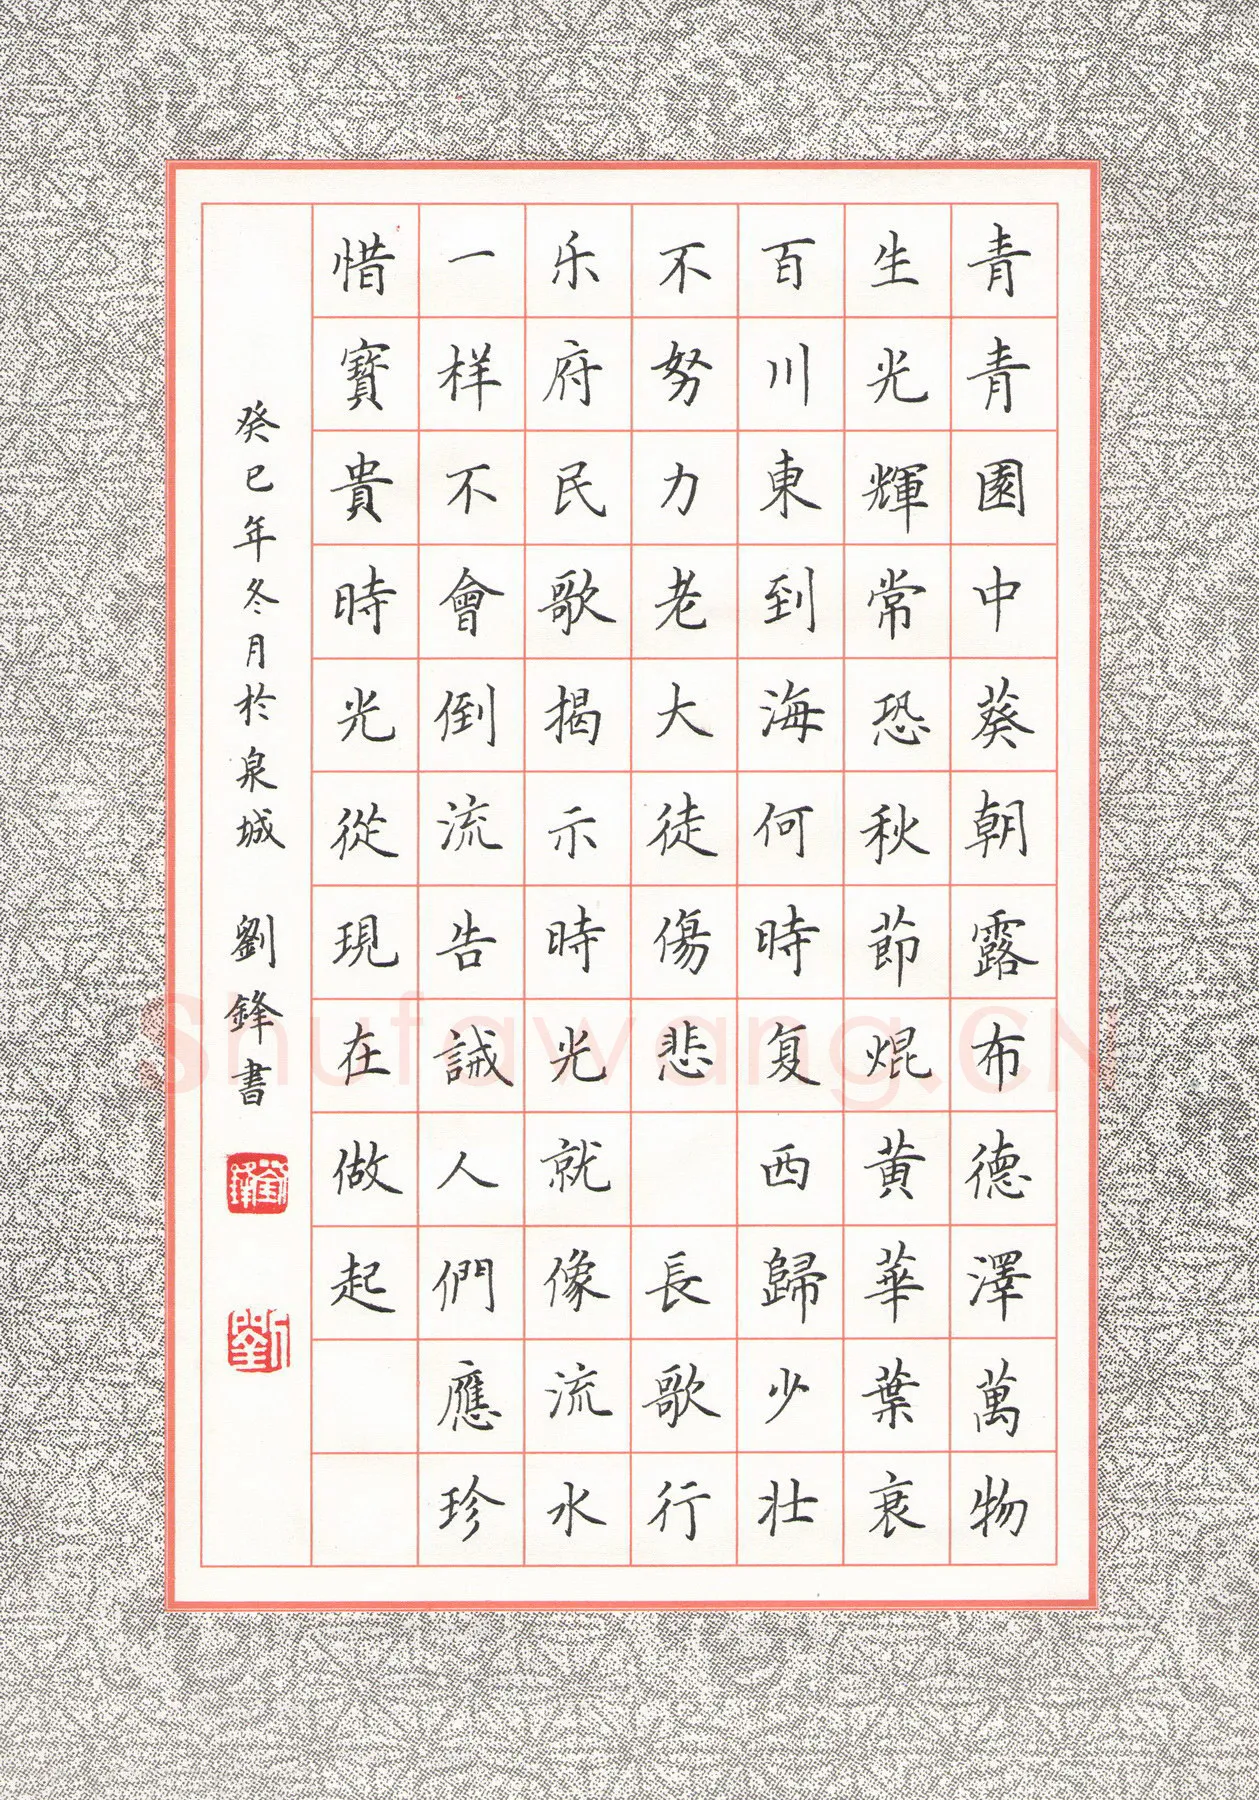 青青園中葵朝露布德澤萬物
生光輝常恐秋節焜黄華葉衰
百川東到海何時复西歸少壮
不努力老大徒傷悲 長歌行
乐府民歌揭示時光就像流水
一样不會倒流告誡人們應珍
惜寶貴時光從現在做起
癸巳年冬月於泉城 劉鋒書
劉鋒
劉
Shufawang.CN